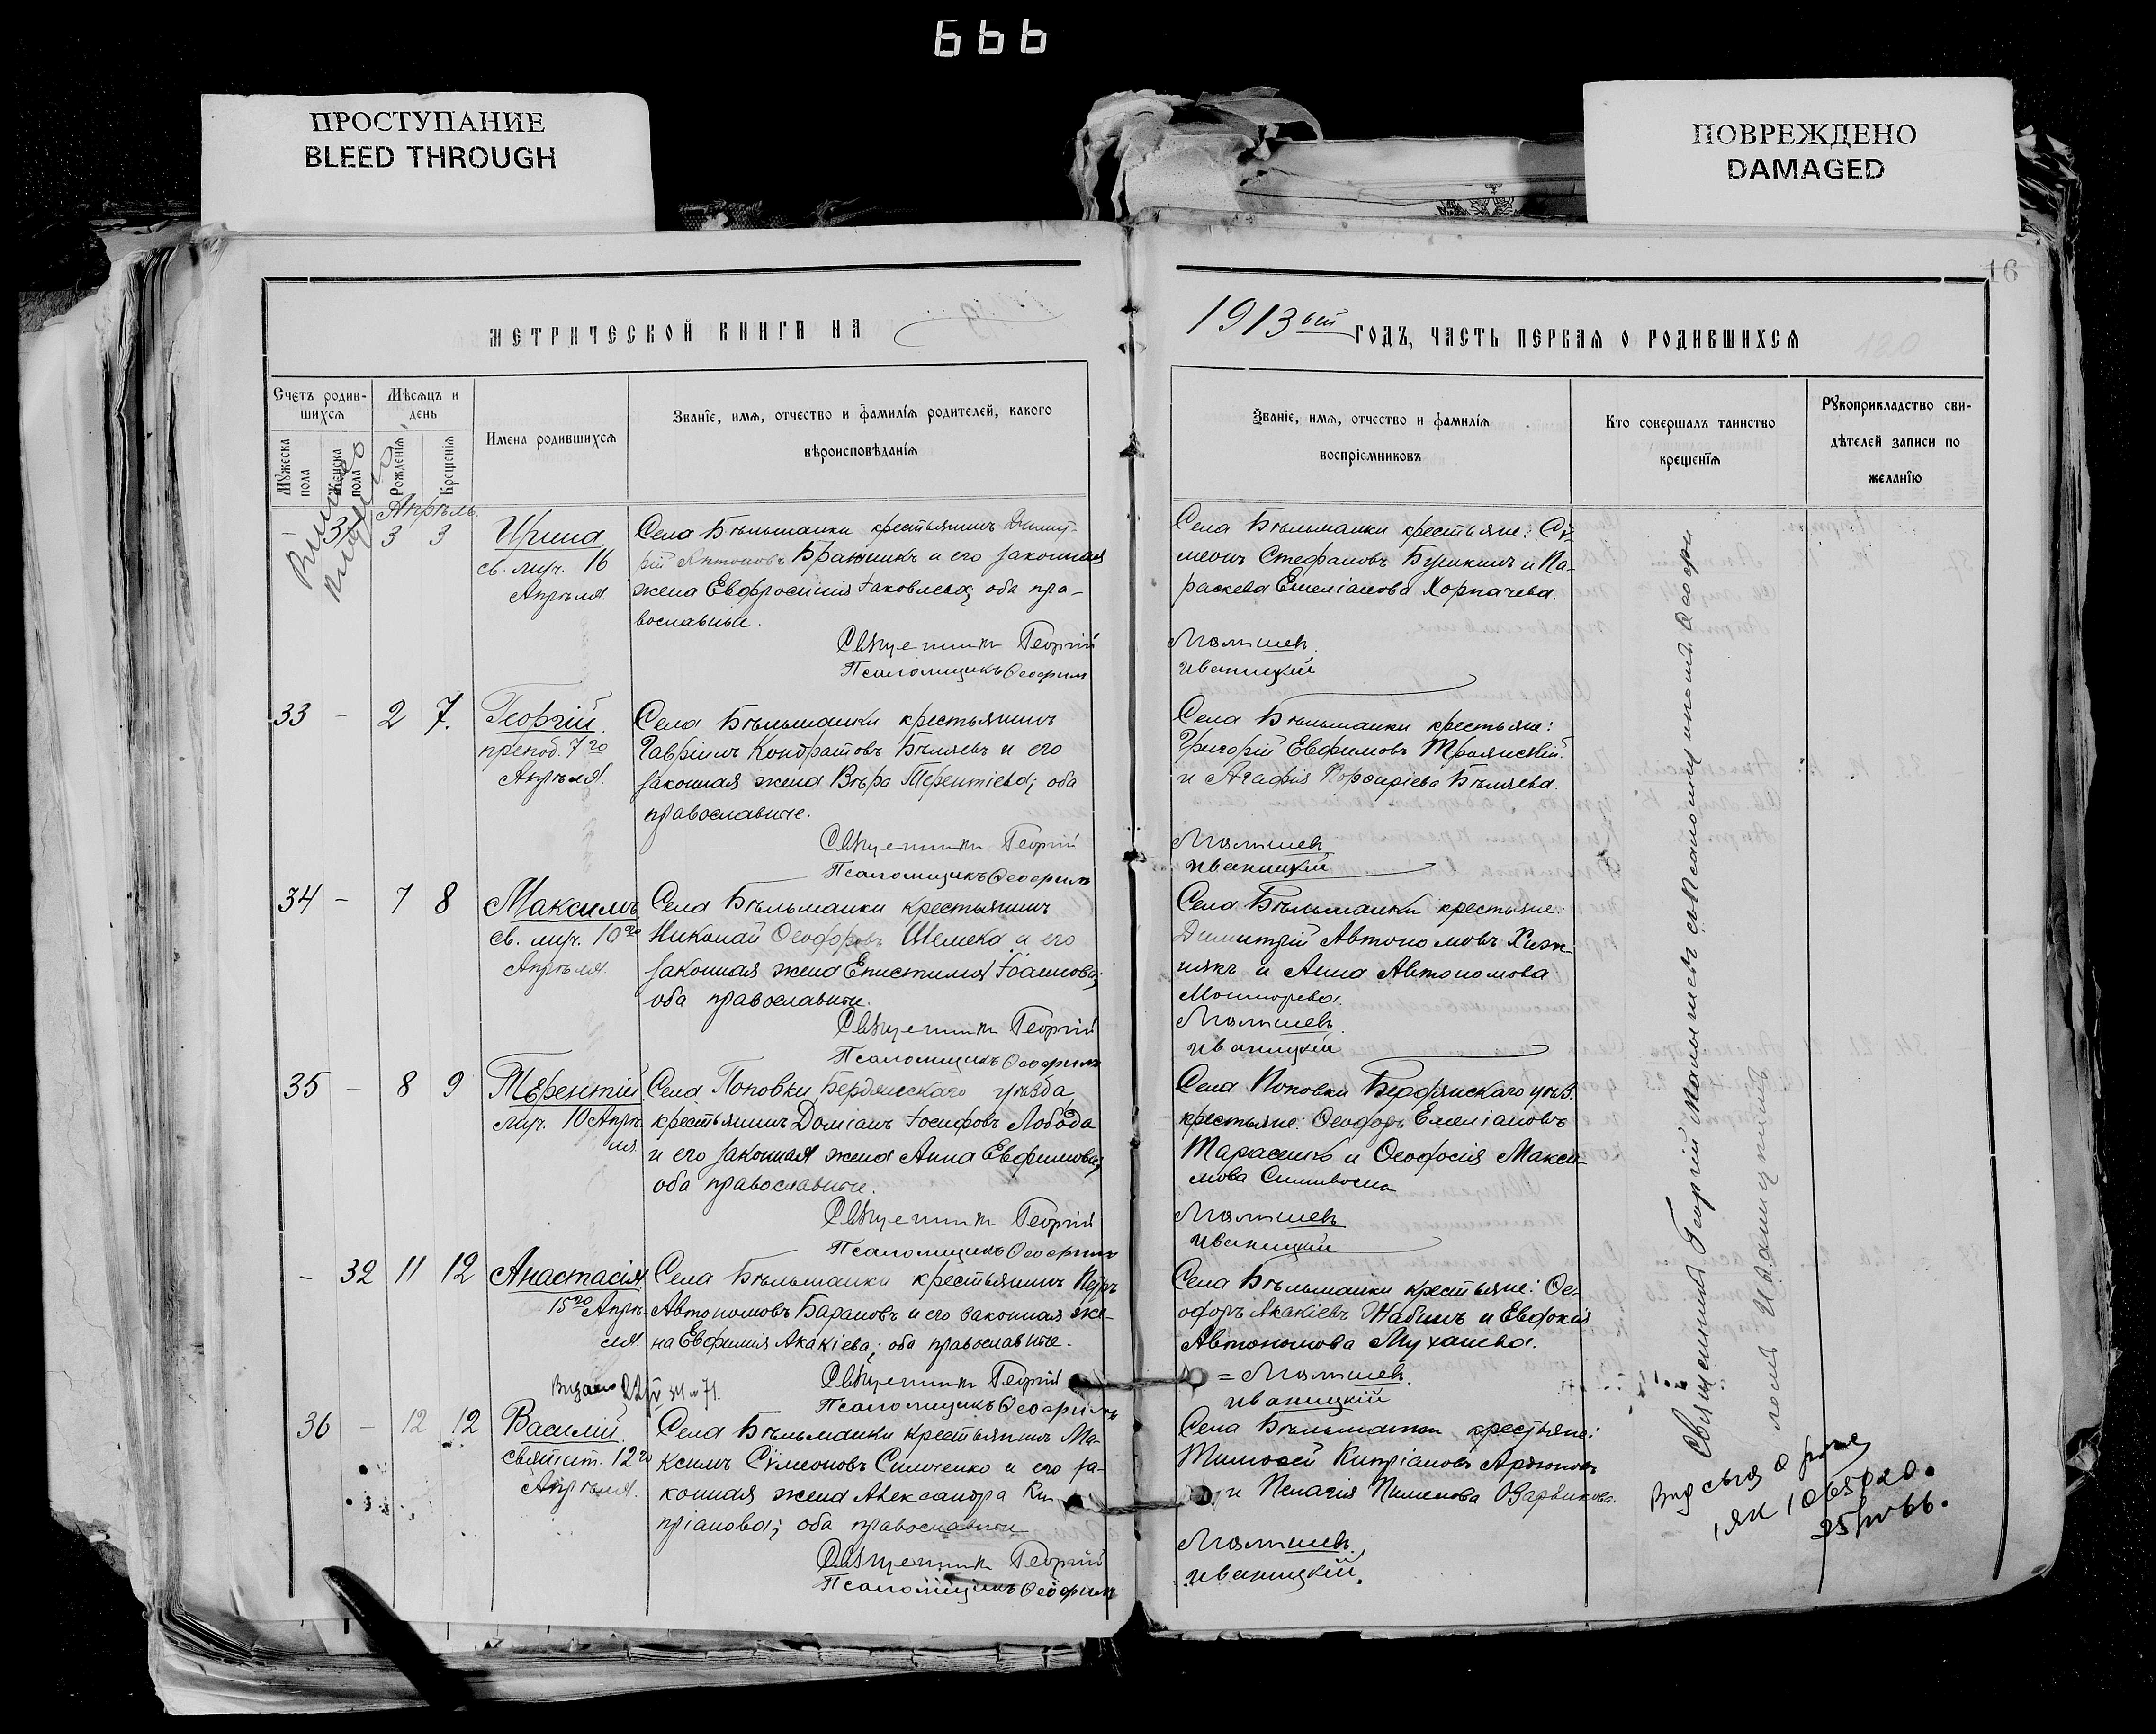 666
ПРОСТУПАНИЕ
BLEED THROUGH
ПОВРЕЖДЕНО
DAMAGED
16
МЕТРИЧЕСКОЙ КНИГИ НА
1913ый ГОДЪ, ЧАСТЬ ПЕРВАЯ О РОДИВШИХСЯ
Счетъ родив-
шихся
Мужеска
пола
Женска
пола
Мѣсяцъ и
день
Рожденія
Крещенія
Имена родившихся
Званіе, имя, отчество и фамилія родителей, какого
вѣроисповѣданія
Званіе, имя, отчество и фамилія
воспріемниковъ
Кто совершалъ таинство
крещенія
Рукоприкладство сви-
дѣтелей записи по
желанію
Апрѣль
– 31 3 3
Ирина
св. муч. 16
Апрѣля.
Села Бѣльманки крестьянинъ Димит-
рій Антоновъ Бражникъ и его законная
жена Евфросинія Іаковлева; оба пра-
вославные.
Священникъ Георгій
Псаломщикъ Ѳеофилъ
Села Бѣльманки крестьяне: Сѵ-
меонъ Стефановъ и Па-
раскева Емеліанова Хорпачева.
Малышевъ.
Иваницкій
33 – 2 7.
Георгій.
препод. 7го
Апрѣля.
Села Бѣльманки крестьянинъ
Гавріилъ Кондратовъ Бѣляевъ и его
законная жена Вѣра Терентіева; оба
православные.
Священникъ Георгій
Псаломщикъ Ѳеофилъ
Села Бѣльманки крестьяне:
Григорій Евфимовъ Троянскій
и Агафія Порфиріева Бѣляева.
Малышевъ
Иваницкій
34 – 7 8
Максимъ
св. муч. 10го
Апрѣля.
Села Бѣльманки крестьянинъ
Николай Ѳеодоровъ Шемека и его
законная жена Епистимія Іоаннова;
оба православные.
Священникъ Георгій
Псаломщикъ Ѳеофилъ
Села Бѣльманки крестьяне:
Димитрій Автономовъ Хиж-
някъ и Анна Автономова
Малышевъ.
Иваницкій
35 – 8 9
Терентій
муч. 10 Апрѣ-
ля.
Села Поповки Бердянскаго уѣзда,
крестьянинъ Доміанъ Іосифовъ Лобода
и его законная жена Анна Евфимова;
оба православные.
Священникъ Георгій
Псаломщикъ Ѳеофилъ
Села Поповки Бердянскаго уѣз.
крестьяне: Ѳеодоръ Емеліановъ
Тарасенко и Ѳеодосія Макси-
мова
Малышевъ
Иваницкій
– 32 11 12
Анастасія
15го Апрѣ-
ля.
Села Бѣльманки крестьянинъ Петръ
Автономовъ Барановъ и его законная же-
на Евфимія Акакіева; оба православные.
Священникъ Георгій
Псаломщикъ Ѳеофилъ
Села Бѣльманки крестьяне: Ѳе-
одоръ Акакіевъ и Евдокія
Автономова Муханева.
= Малышевъ.
Иваницкій
36 – 12 12
Василій
святит. 12го
Апрѣля.
Села Бѣльманки крестьянинъ Ма-
ксимъ Сѵмеоновъ Симченко и его за-
конная жена Александра Ки-
пріанова; оба православные
Священникъ Георгій
Псаломщикъ Ѳеофилъ
Села Бѣльманки крестьяне:
Тимоѳей Кипріановъ
и Пелагія Пименова
Малышевъ.
Иваницкій.
Священникъ Георгій Малышевъ съ Псаломщикомъ Ѳеофи-
ломъ Иваницкимъ
1065020.